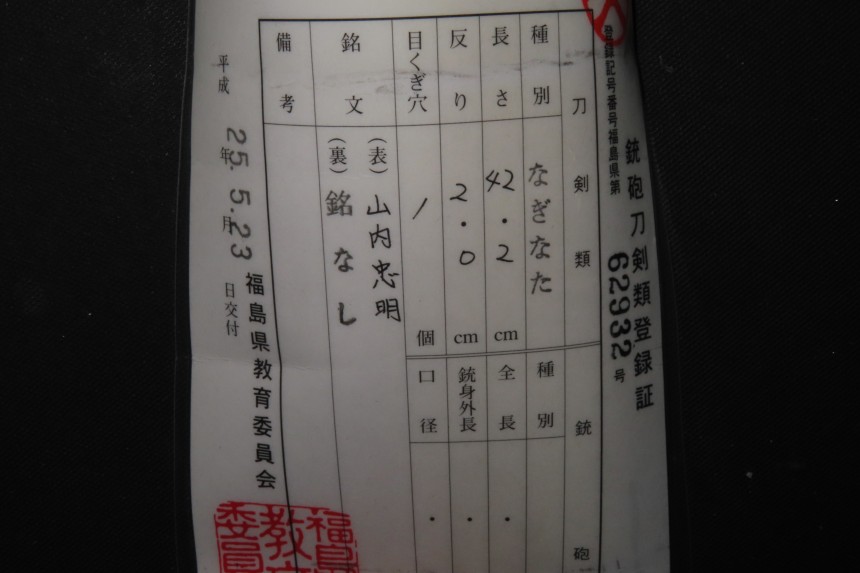 銃砲刀剣類登録証
登録記号番号福島県第 62932 号
刀剣類
種別 なぎなた
長さ 42.2 cm
反り 2.0 cm
目くぎ穴 1 個
銘文 (表) 山内忠明
(裏) 銘なし
備考
銃砲
種別
全長 .
銃身外長 .
口径 .
平成 25年 5.月 23 日交付
福島県教育委員会
福島
教
委員